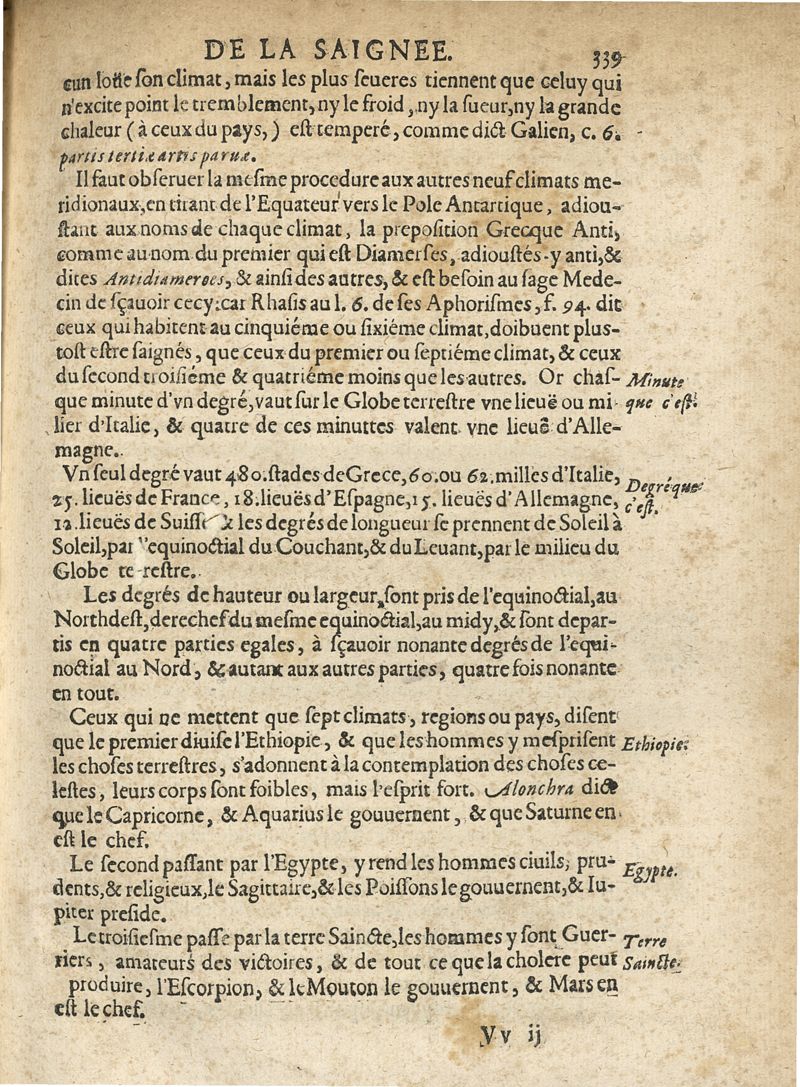 DE LA SAIGNEE. 339
cun loüe ſon climat, mais les plus ſeueres tiennent que celuy qui
n'excite point le tremblement, ny le froid, ny la ſueur, ny la grande
chaleur (à ceux du pays,) eſt temperé, comme dict Galien, c. 6.
partis tertiæ artis paruæ.
Il faut obſeruer la meſme procedure aux autres neuf climats me-
ridionaux, en tirant de l'Equateur vers le Pole Antarctique, adiou-
ſtant aux noms de chaque climat, la prepoſition Grecque Anti,
comme au nom du premier qui eſt Diamerſes, adiouſtés-y anti, &
dites Antidiameroes, & ainſi des autres, & eſt beſoin au ſage Mede-
cin de ſçauoir cecy: car Rhaſis au l. 6. de ſes Aphoriſmes, f. 94. dit
ceux qui habitent au cinquiéme ou ſixiéme climat, doibuent plus-
toſt eſtre ſaignés, que ceux du premier ou ſeptiéme climat, & ceux
du ſecond troiſiéme & quatriéme moins que les autres. Or chaſ- Minute
que minute d'vn degré, vaut ſur le Globe terreſtre vne lieuë ou mi- que c'eſt.
lier d'Italie, & quatre de ces minuttes valent vne lieuë d'Alle-
magne.
Vn ſeul degré vaut 480. ſtades de Grece, 60. ou 62. milles d'Italie, Degré que
25. lieuës de France, 18. lieuës d'Eſpagne, 15. lieuës d'Allemagne, c'eſt.
12. lieuës de Suiſſe & les degrés de longueur ſe prennent de Soleil à
Soleil, par l'equinoctial du Couchant, & du Leuant, par le milieu du
Globe terreſtre.
Les degrés de hauteur ou largeur, ſont pris de l'equinoctial, au
Northdeſt, derechef du meſme equinoctial, au midy, & ſont depar-
tis en quatre parties egales, à ſçauoir nonante degrés de l'equi-
noctial au Nord, & autant aux autres parties, quatre fois nonante
en tout.
Ceux qui ne mettent que ſept climats, regions ou pays, diſent
que le premier diuiſe l'Ethiopie, & que les hommes y meſpriſent Ethiopie.
les choſes terreſtres, s'adonnent à la contemplation des choſes ce-
leſtes, leurs corps ſont foibles, mais l'eſprit fort. Alonchra dict
que le Capricorne, & Aquarius le gouuernent, & que Saturne en
eſt le chef.
Le ſecond paſſant par l'Egypte, y rend les hommes ciuils, pru- Egypte.
dents, & religieux, le Sagittaire, & les Poiſſons le gouuernent, & Iu-
piter preſide.
Le troiſieſme paſſe par la terre Saincte, les hommes y ſont Guer- Terre
riers, amateurs des victoires, & de tout ce que la cholere peut Saincte.
produire, l'Eſcorpion, & le Mouton le gouuernent, & Mars en
eſt le chef.
Vv ij